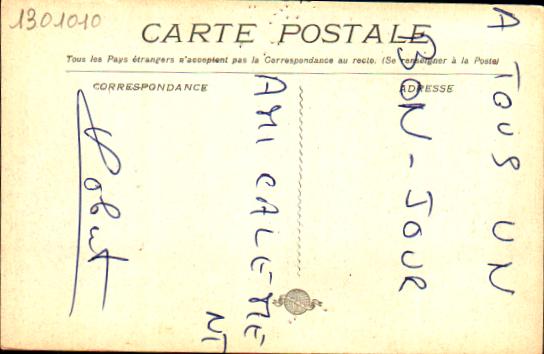 1301010
CARTE POSTALE
Tous les Pays étrangers n'acceptent pas la Correspondance au recto. (Se renseigner à la Poste)
CORRESPONDANCE
ADRESSE
A TOUS UN
BON-JOUR
AMICALEME
NT
Robert